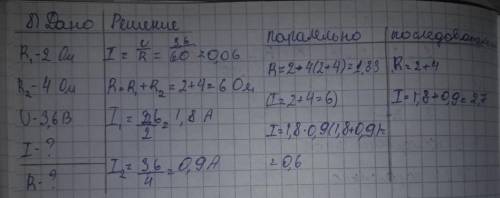 б) Дано
R₁-2 Ом
R₂-4 Ом
U-3,6В
I-?
R-?
Решение
I = U/R = 36/60 = 0,06
R=R₁+R₂=2+4=6 Ом
I₁ = 36/2 = 1,8 А
I₂ = 36/4 = 0,9 А
паралельно
R=2+4(2+4)=1,33
(I=2+4=6)
I=1,8·0,9(1,8+0,9)=
=0,6
последоват
R=2+4
I=1,8+0,9=2,7